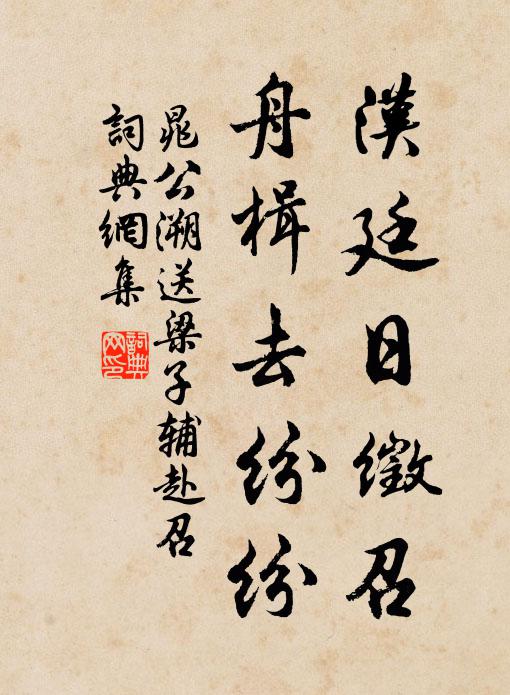 漢廷日徵召
舟楫去紛紛
晁公溯送梁子輔赴召
詞典網集
詞典
网印